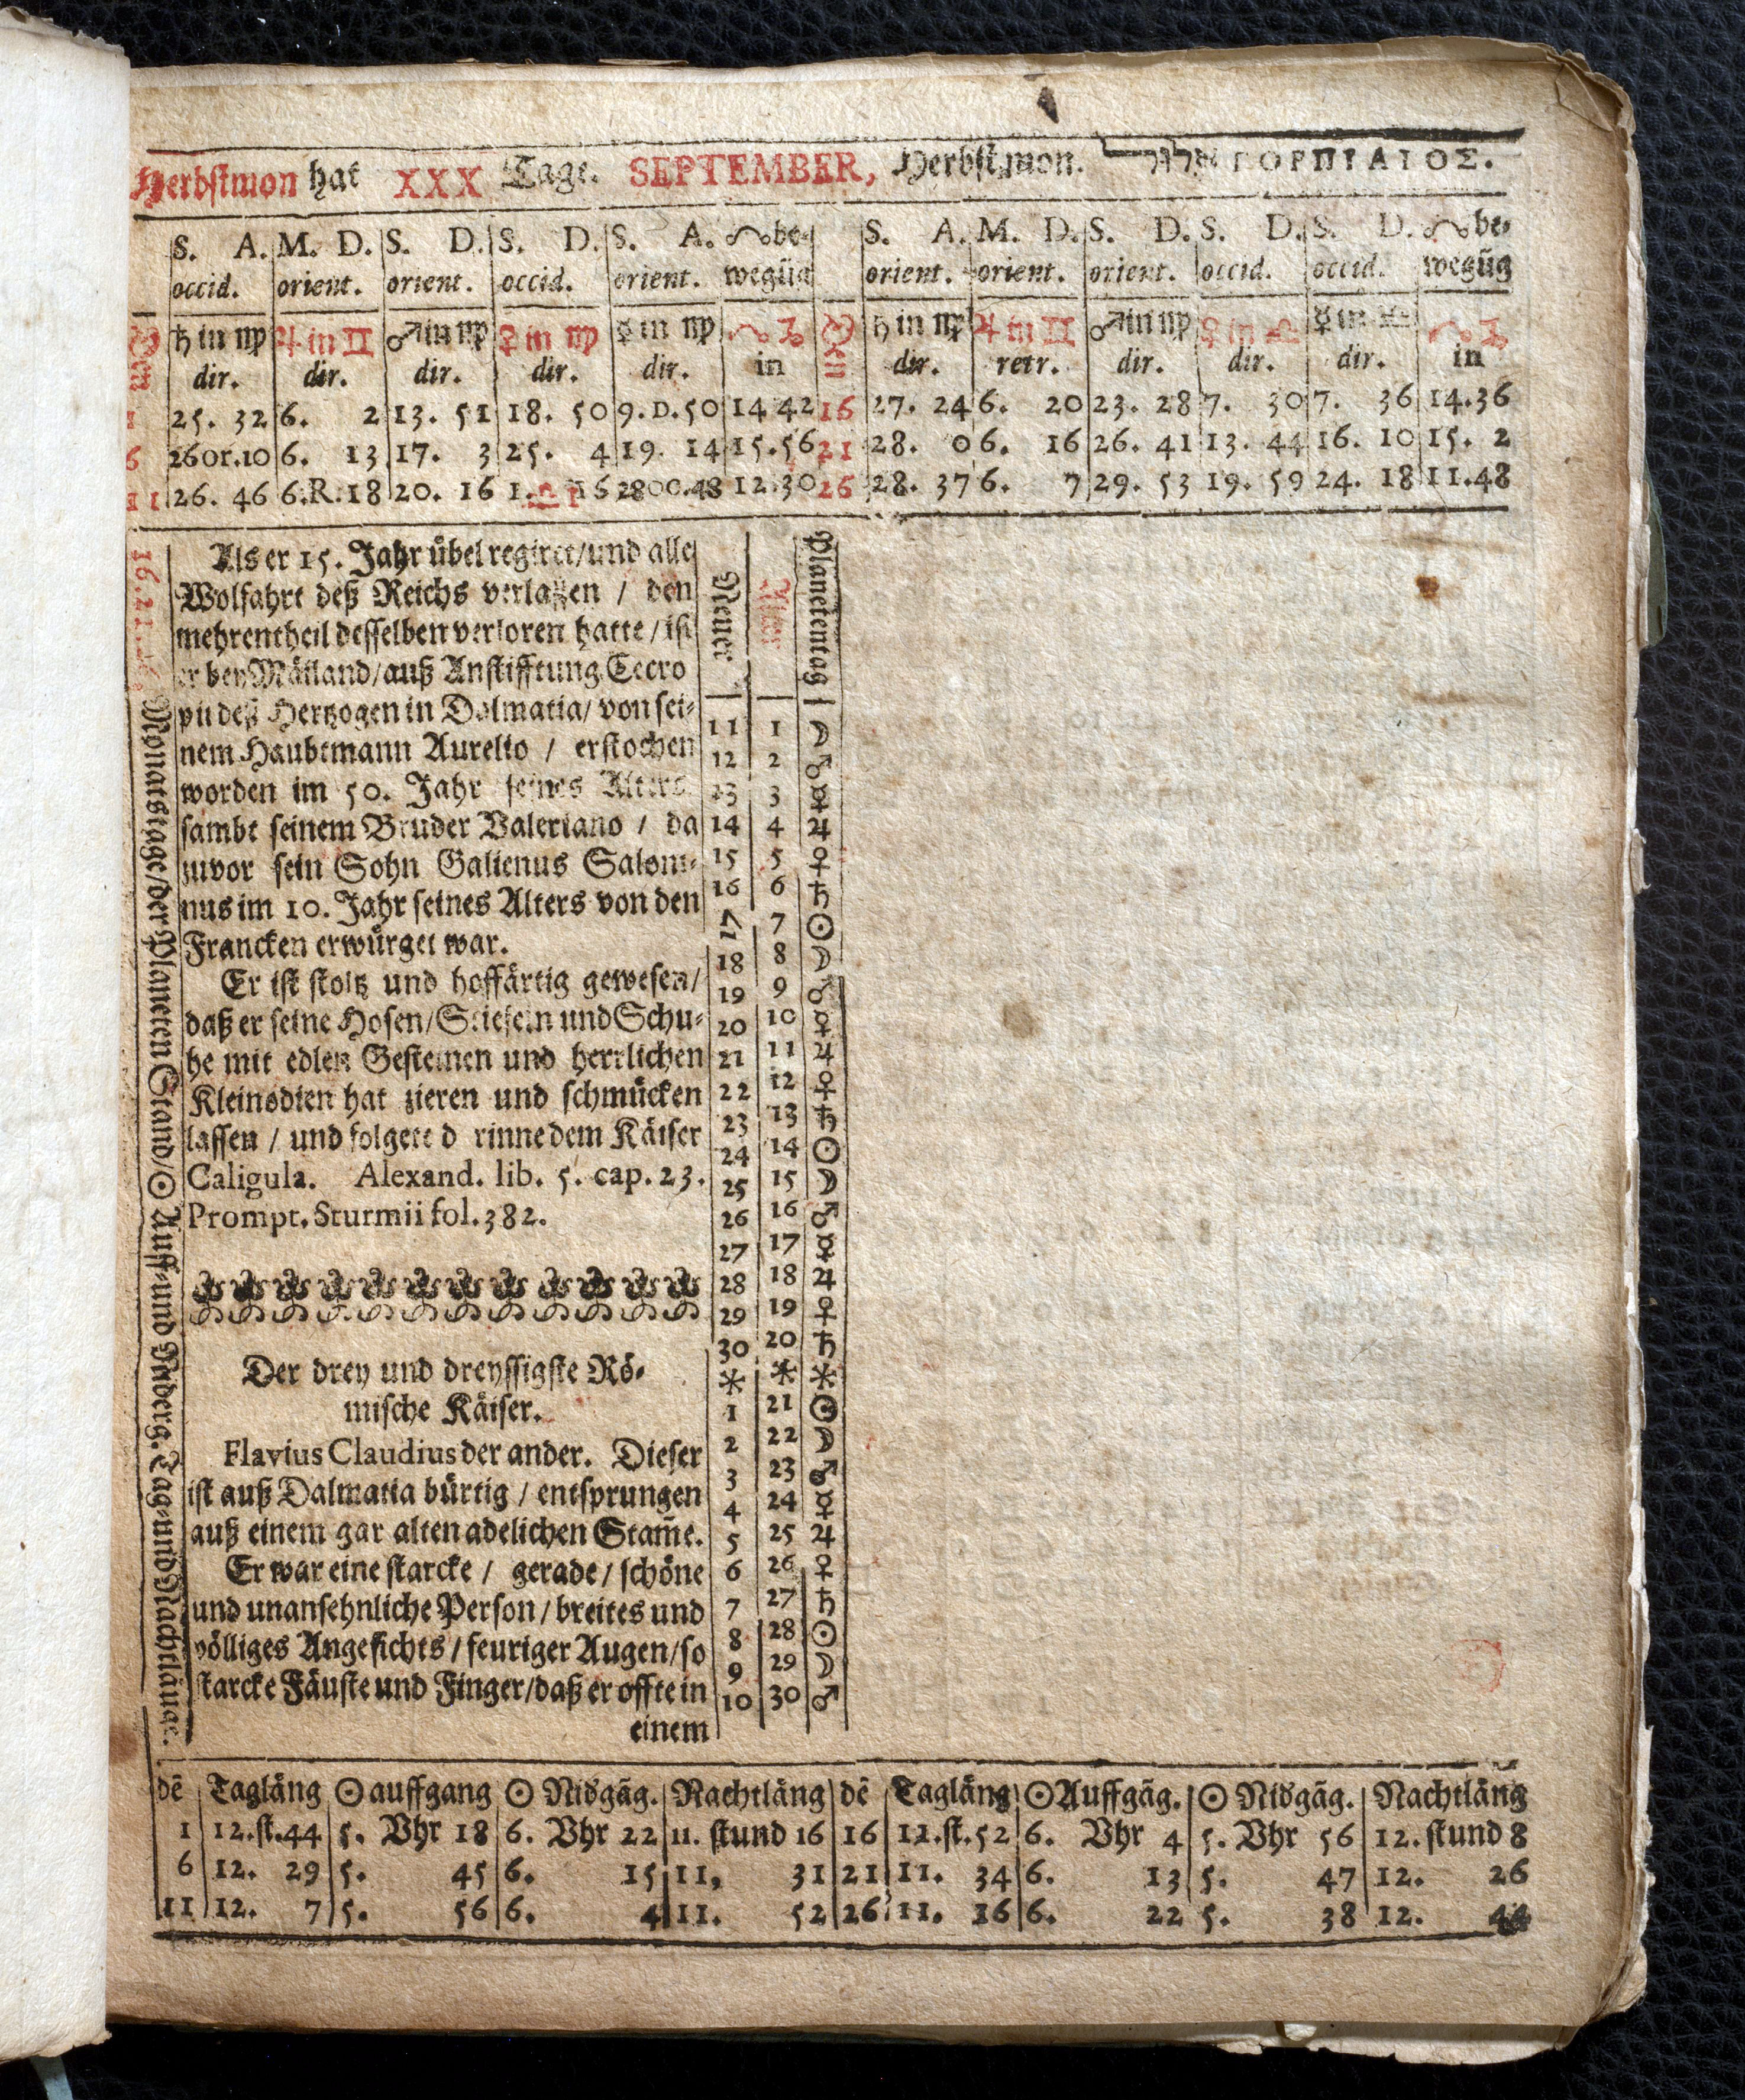 Herbstmon hat XXX Tage. SEPTEMBER, Herbstmon. ΓΟΡΠΙΑΙΟΣ.
S. A. M. D. S. D. S. D. S. A. ☊ be- S. A. M. D. S. D. S. D. S. D. ☊ be-
occid. orient. orient. occid. orient. wegūg orient. orient. orient. occid. occid. wegūg
♄ in ♍ ♃ in ♊ ♂ in ♍ ♀ in ♍ ☿ in ♍ ♄ in ♍ ♃ in ♊ ♂ in ♍ ♀ in ♎ ☿ in ♎
dir. dir. dir. dir. dir. in dir. retr. dir. dir. dir. in
1 25. 32 6. 2 13. 51 18. 50 9.D.50 14 42 16 27. 24 6. 20 23. 28 7. 30 7. 36 14.36
6 26or.10 6. 13 17. 3 25. 4 19. 14 15.56 21 28. 0 6. 16 26. 41 13. 44 16. 10 15. 2
11 26. 46 6.R.18 20. 16 1.♎16 28oc.48 12.30 26 28. 37 6. 7 29. 53 19. 59 24. 18 11.48
Monatstage/der Planeten Stand/☉ Auff-und Niderg. Tag-und Nachtlänge.
Als er 15. Jahr übel regiret/und alle
Wolfahrt deß Reichs verlassen / den
mehrentheil desselben verloren hatte / ist
er bey Mäiland/auß Anstifftung Cecro
pii deß Hertzogen in Dalmatia/ von sei-
nem Haubtmann Aurelio / erstochen
worden im 50. Jahr seines Alters
sambt seinem Bruder Valeriano / da
zuvor sein Sohn Galienus Saloni-
nus im 10. Jahr seines Alters von den
Francken erwürget war.
Er ist stoltz und hoffärtig gewesen/
daß er seine Hosen/Stiefeln und Schu-
he mit edlen Gesteinen und herrlichen
Kleinodien hat zieren und schmücken
lassen / und folgete d rinne dem Käiser
Caligula. Alexand. lib. 5. cap. 23.
Prompt. Sturmii fol. 382.
Der drey und dreyssigste Rö-
mische Käiser.
Flavius Claudius der ander. Dieser
ist auß Dalmatia bürtig / entsprungen
auß einem gar alten adelichen Stam̄e.
Er war eine starcke / gerade / schöne
und unansehnliche Person / breites und
völliges Angesichts / feuriger Augen/so
starcke Fäuste und Finger/daß er offte in
einem
Neuer Alter Planetentag
11 1 ☽
12 2 ♂
13 3 ☿
14 4 ♃
15 5 ♀
16 6 ♄
17 7 ☉
18 8 ☽
19 9 ♂
20 10 ☿
21 11 ♃
22 12 ♀
23 13 ♄
24 14 ☉
25 15 ☽
26 16 ♂
27 17 ☿
28 18 ♃
29 19 ♀
30 20 ♄
* * *
1 21 ☉
2 22 ☽
3 23 ♂
4 24 ☿
5 25 ♃
6 26 ♀
7 27 ♄
8 28 ☉
9 29 ☽
10 30 ♂
dē Tagläng ☉ auffgang ☉ Nidgāg. Nachtläng dē Tagläng ☉ Auffgāg. ☉ Nidgāg. Nachtläng
1 12.st.44 5. Vhr 18 6. Vhr 22 11. stund 16 16 11.st.52 6. Vhr 4 5. Vhr 56 12. stund 8
6 12. 29 5. 45 6. 15 11, 31 21 11. 34 6. 13 5. 47 12. 26
11 12. 7 5. 56 6. 4 11. 52 26 11. 16 6. 22 5. 38 12. 44